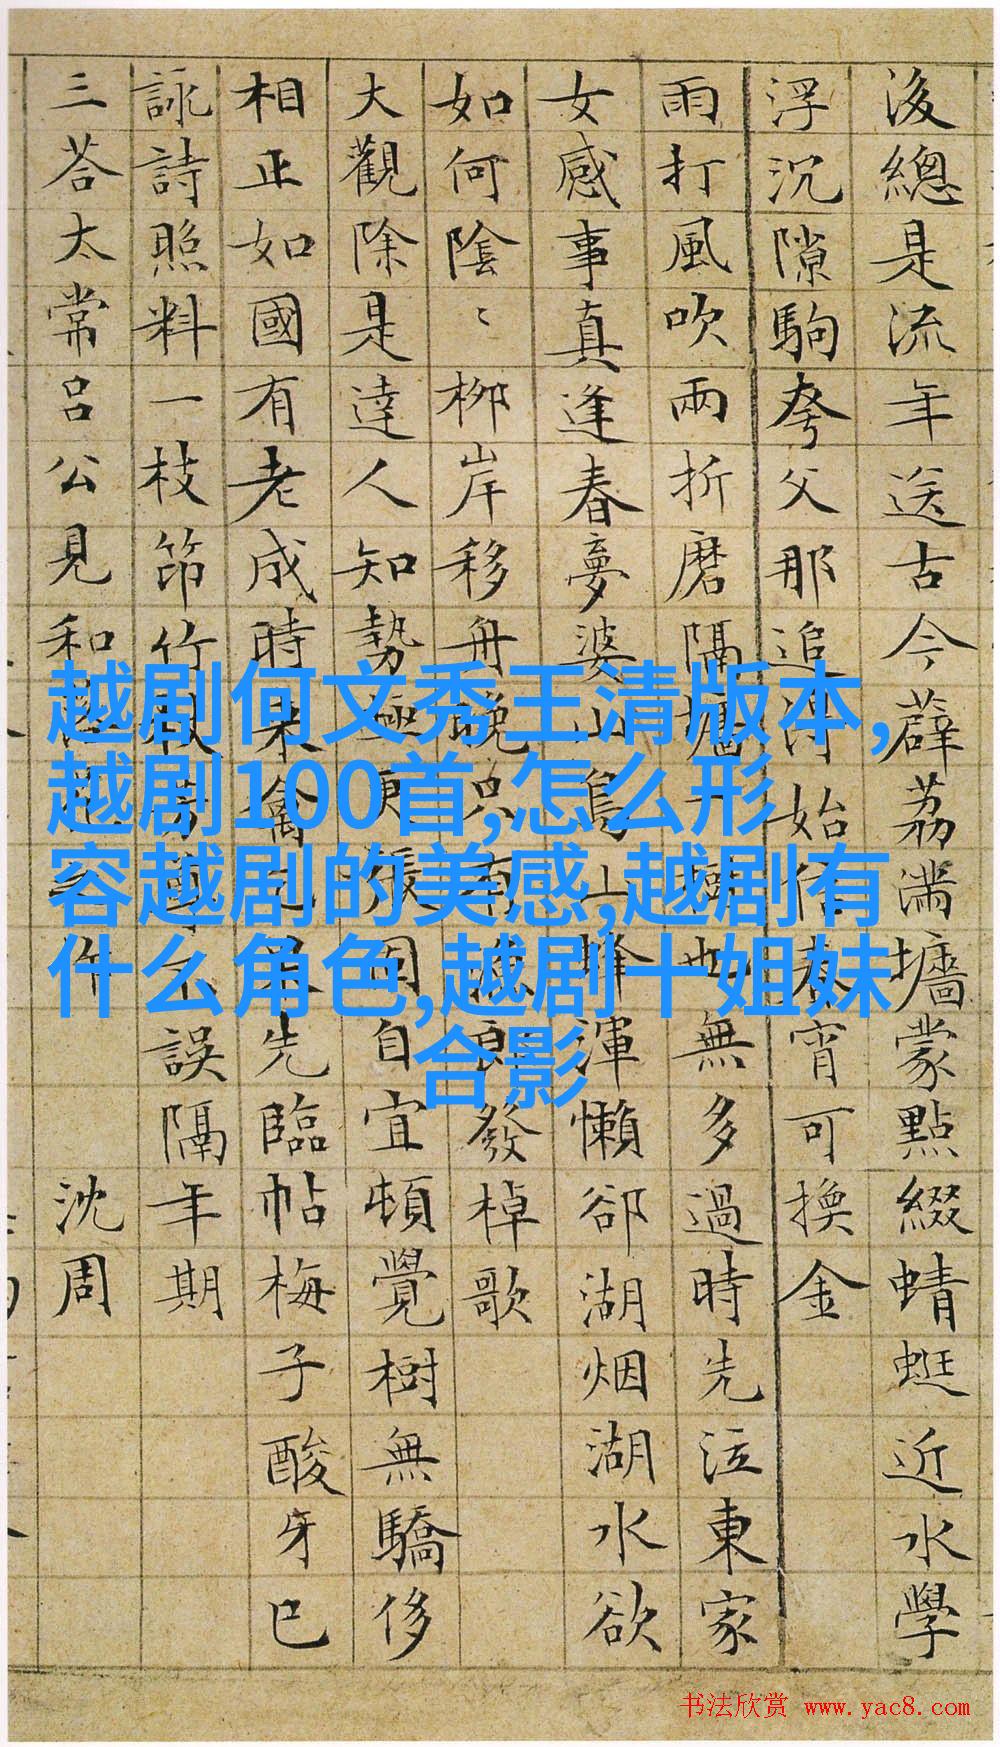 後總是流年送古今薜荔滿墻蒙點綴蜻蜓近水學
浮沉隙駒夸父那追得始信春宵可換金
雨打風吹兩折磨隔墻一樹也無多過時先泣東家
女感事真逢春夢婆山鳥山蜂渾懶郤湖烟湖水欲
如何陰〻柳岸移舟晚只有漁郎發棹歌
大觀除是達人知勢極更張固自宜頓覺樹無驕侈
相正如國有老成時來禽已先臨帖梅子酸牙已
詠詩照料一枝笻竹不誤隔年期
三荅太常呂公見和 沈周
越剧何文秀王清版本,
越剧100首,怎么形
容越剧的美感,越剧有
什么角色,越剧十姐妹
合影
书法欣赏 www.yac8.com